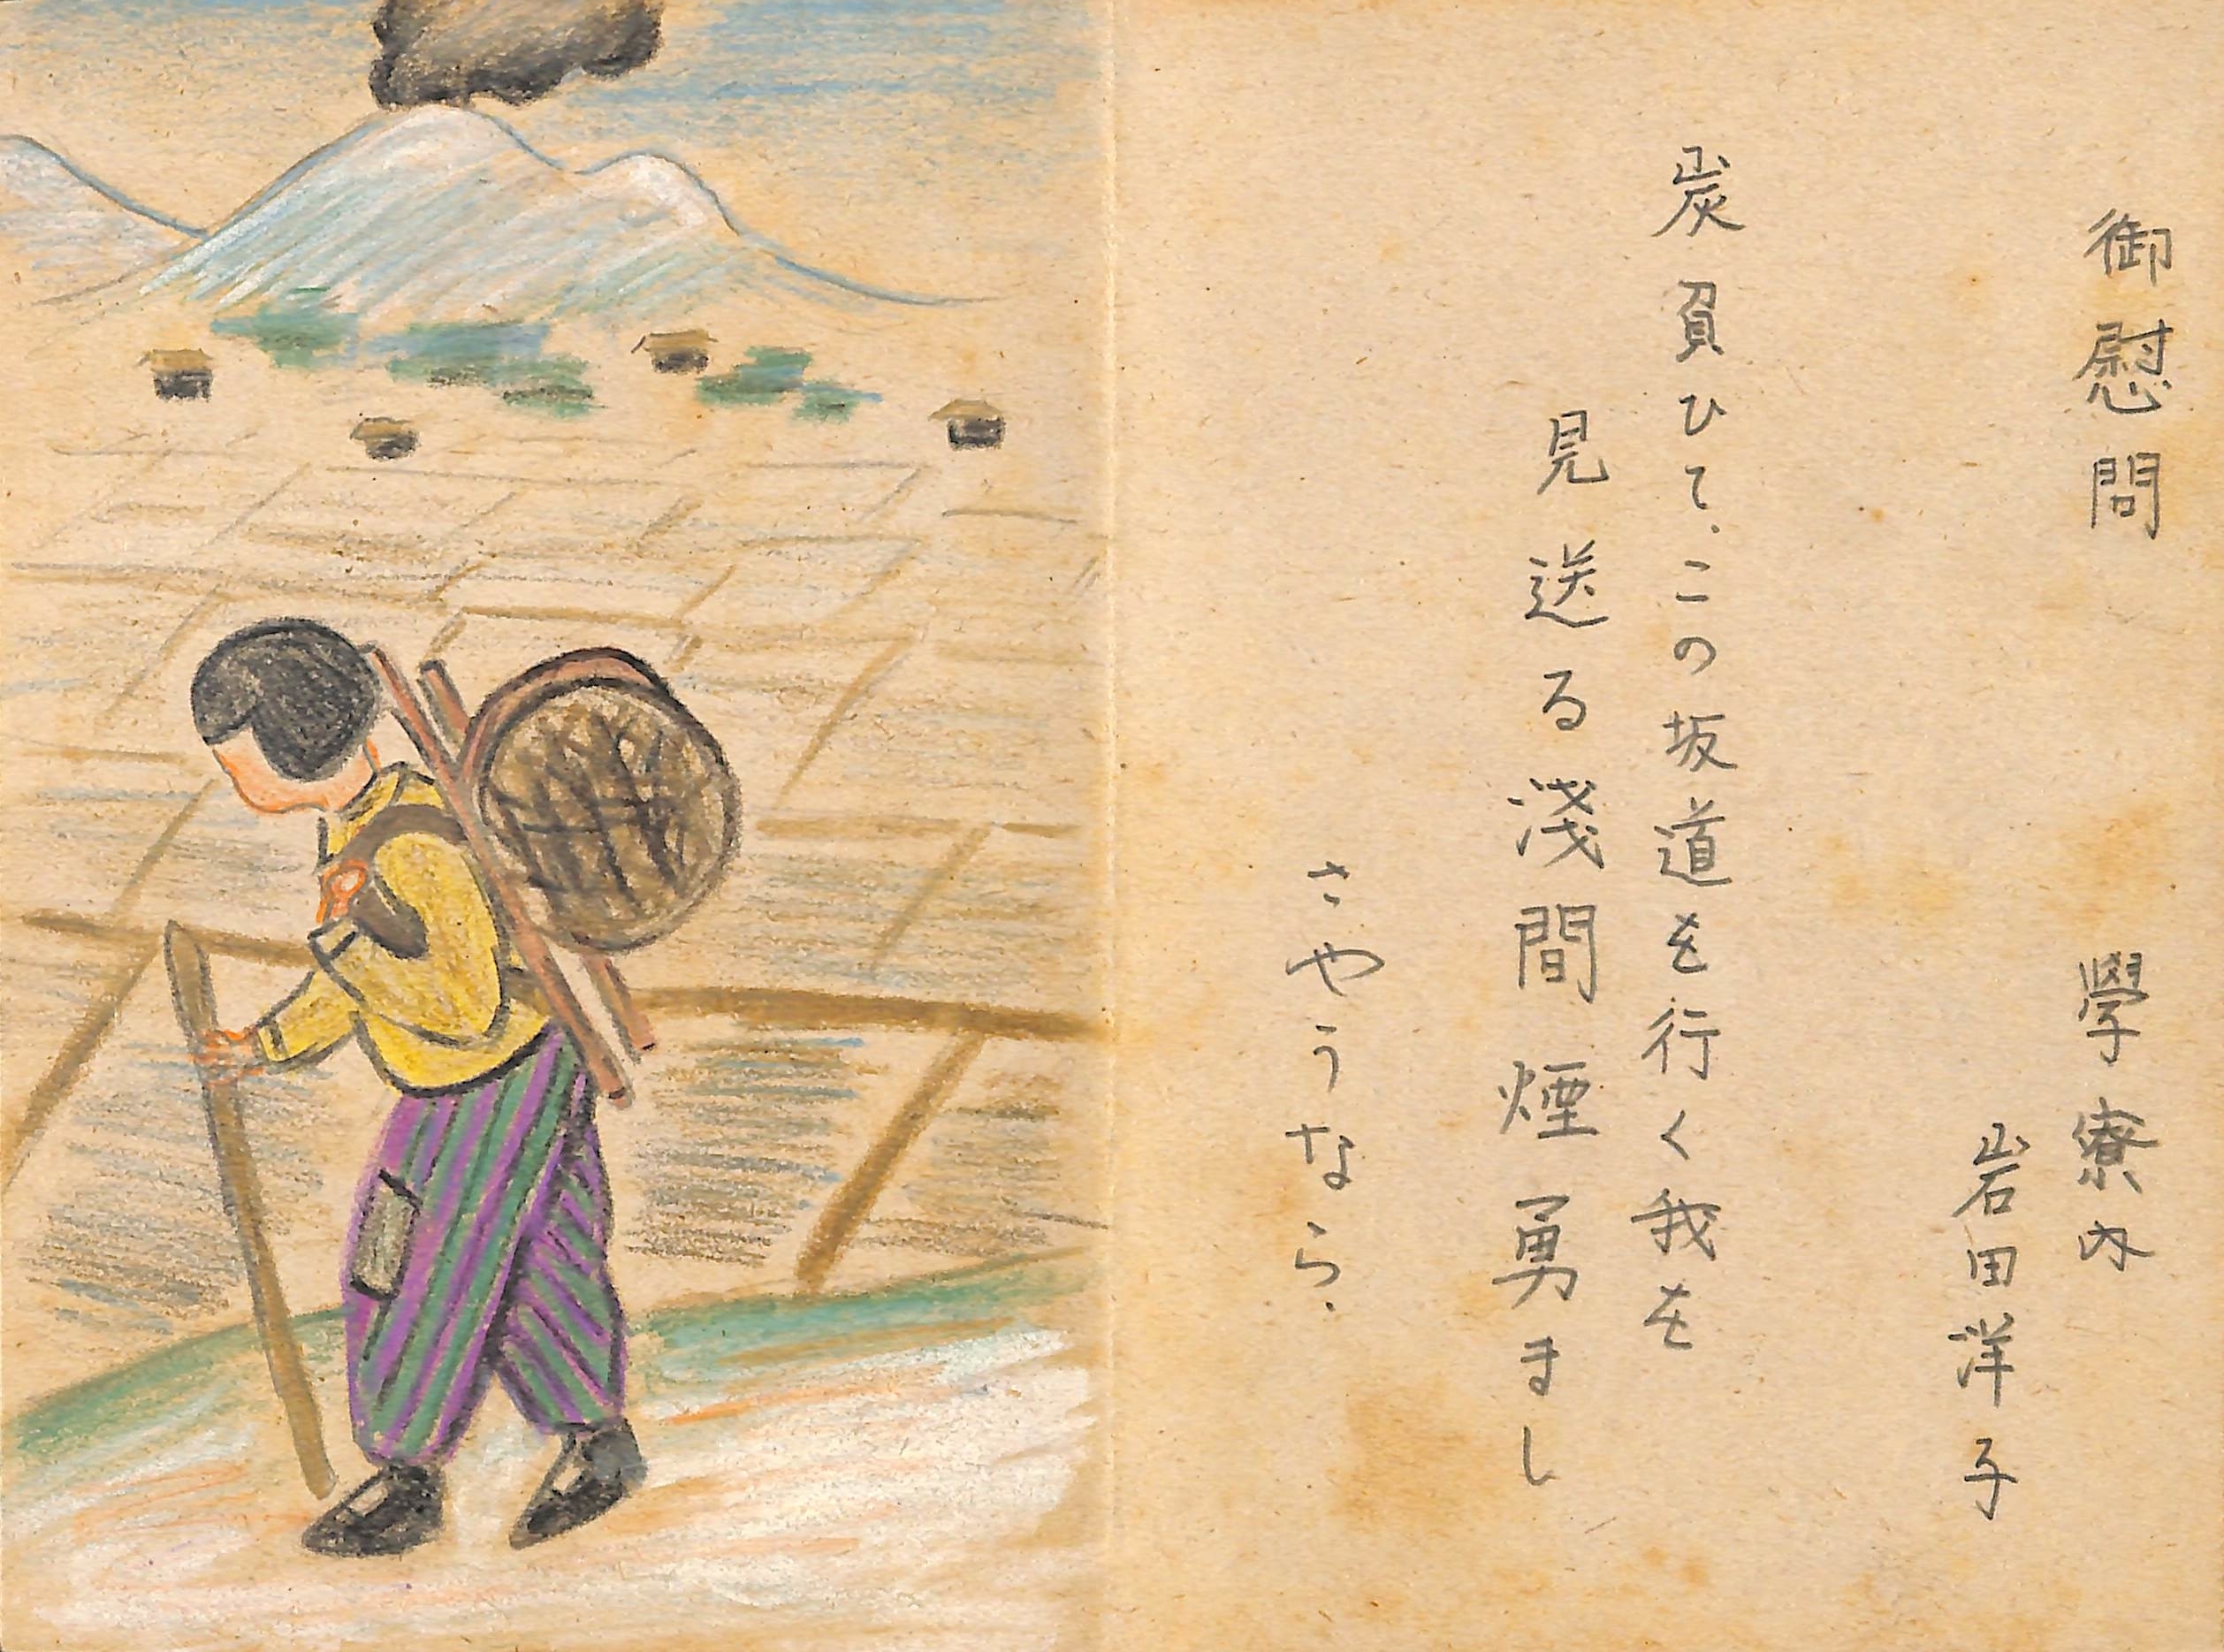 御慰問
學寮内
岩田洋子
炭負ひて、この坂道を行く我を
見送る淺間煙勇まし
さやうなら.